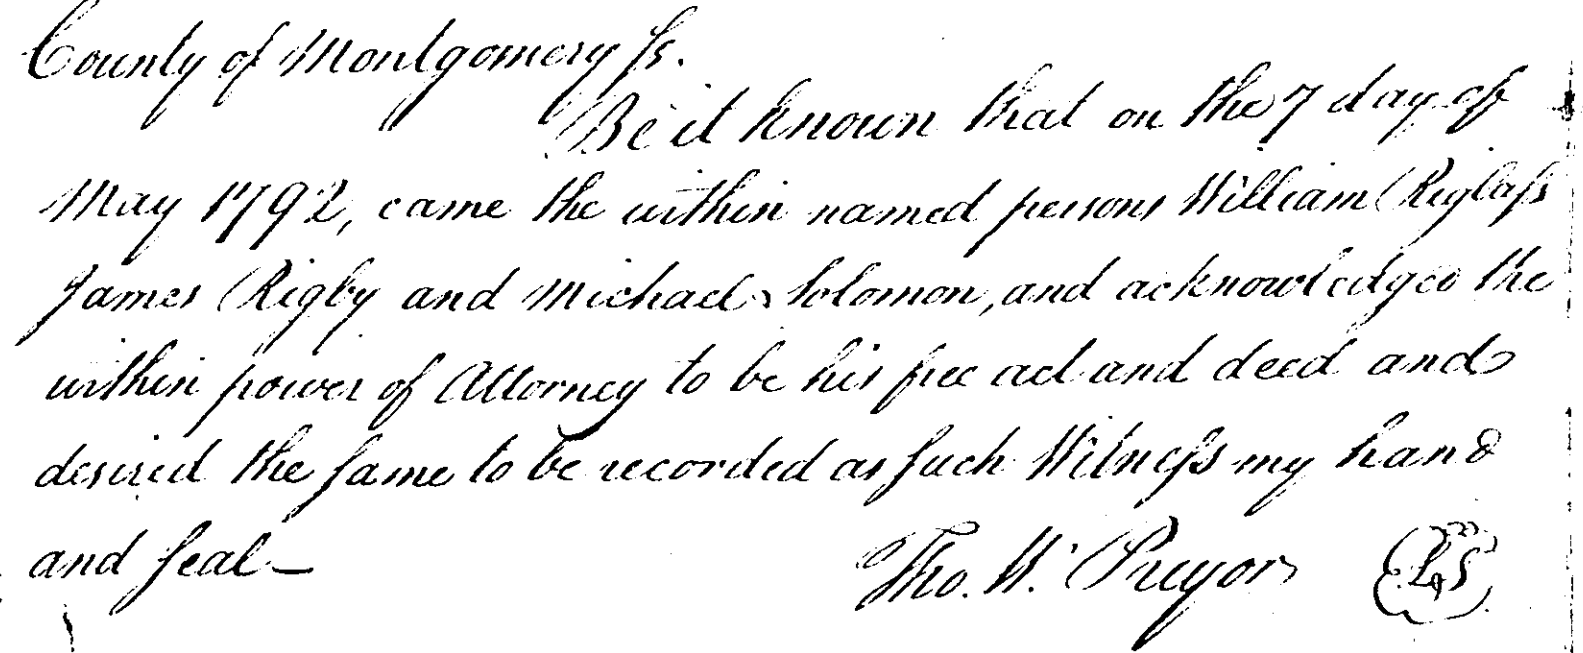 County of Montgomery ss.
Be it known that on the 7 day of
May 1792, came the within named persons William Riglass
James Rigby and Michael Solomon, and acknowledged the
within power of Attorney to be his free act and deed and
desired the same to be recorded as such Witness my hand
and seal —
Tho. W. Pryor L S